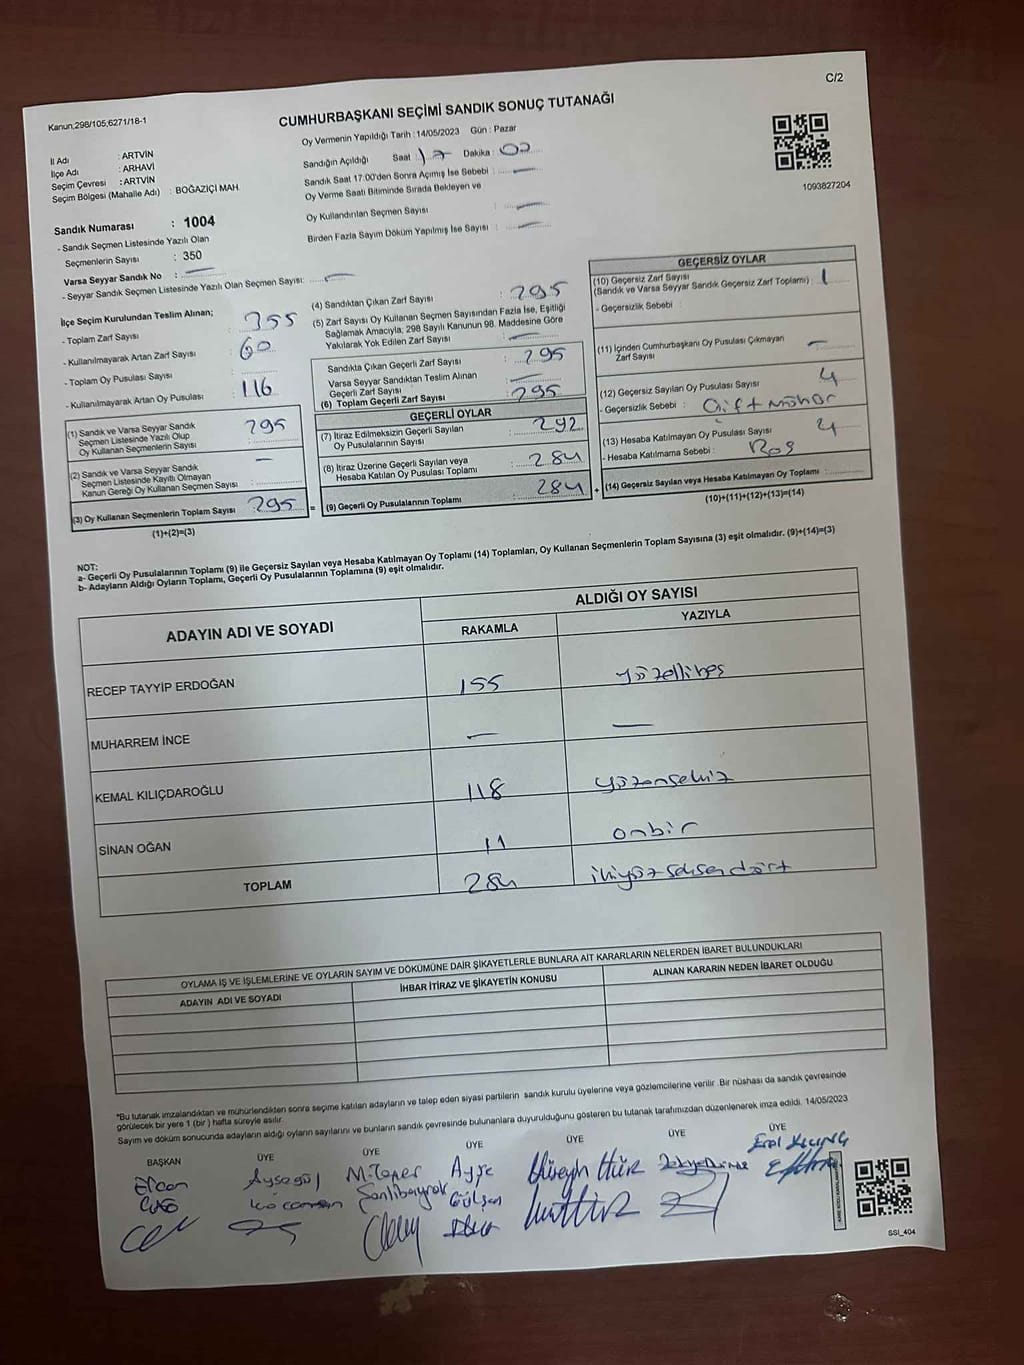 C/2
Kanun,298/105,6271/18-1
CUMHURBAŞKANI SEÇİMİ SANDIK SONUÇ TUTANAĞI
Oy Vermenin Yapıldığı Tarih : 14/05/2023 Gün : Pazar
İl Adı : ARTVİN
İlçe Adı : ARHAVİ
Seçim Çevresi : ARTVİN
Seçim Bölgesi (Mahalle Adı) : BOĞAZİÇİ MAH.
Sandığın Açıldığı Saat 17 Dakika : 02
Sandık Saat 17:00'den Sonra Açmış İse Sebebi : —
Oy Verme Saati Bitiminde Sırada Bekleyen ve
Oy Kullandırılan Seçmen Sayısı : —
Birden Fazla Sayım Döküm Yapılmış İse Sayısı : —
1093827204
Sandık Numarası : 1004
- Sandık Seçmen Listesinde Yazılı Olan
Seçmenlerin Sayısı : 350
Varsa Seyyar Sandık No : —
- Seyyar Sandık Seçmen Listesinde Yazılı Olan Seçmen Sayısı: —
İlçe Seçim Kurulundan Teslim Alınan;
- Toplam Zarf Sayısı : 355
- Kullanılmayarak Artan Zarf Sayısı : 60
- Toplam Oy Pusulası Sayısı :
- Kullanılmayarak Artan Oy Pusulası : 116
(1) Sandık ve Varsa Seyyar Sandık
Seçmen Listesinde Yazılı Olup
Oy Kullanan Seçmenlerin Sayısı : 295
(2) Sandık ve Varsa Seyyar Sandık
Seçmen Listesinde Kayıtlı Olmayan
Kanun Gereği Oy Kullanan Seçmen Sayısı : —
(3) Oy Kullanan Seçmenlerin Toplam Sayısı : 295
(1)+(2)=(3)
(4) Sandıktan Çıkan Zarf Sayısı : 295
(5) Zarf Sayısı Oy Kullanan Seçmen Sayısından Fazla İse, Eşitliği
Sağlamak Amacıyla; 298 Sayılı Kanunun 98. Maddesine Göre
Yakılarak Yok Edilen Zarf Sayısı : —
Sandıkta Çıkan Geçerli Zarf Sayısı : 295
Varsa Seyyar Sandıktan Teslim Alınan
Geçerli Zarf Sayısı : —
(6) Toplam Geçerli Zarf Sayısı : 295
GEÇERLİ OYLAR
(7) İtiraz Edilmeksizin Geçerli Sayılan
Oy Pusulalarının Sayısı : 292
(8) İtiraz Üzerine Geçerli Sayılan veya
Hesaba Katılan Oy Pusulası Toplamı : 284
= (9) Geçerli Oy Pusulalarının Toplamı : 284 +
GEÇERSİZ OYLAR
(10) Geçersiz Zarf Sayısı
(Sandık ve Varsa Seyyar Sandık Geçersiz Zarf Toplamı) : 1
- Geçersizlik Sebebi :
(11) İçinden Cumhurbaşkanı Oy Pusulası Çıkmayan
Zarf Sayısı : —
(12) Geçersiz Sayılan Oy Pusulası Sayısı : 4
- Geçersizlik Sebebi : Çift Mühür
(13) Hesaba Katılmayan Oy Pusulası Sayısı : 4
- Hesaba Katılmama Sebebi : Boş
(14) Geçersiz Sayılan veya Hesaba Katılmayan Oy Toplamı :
(10)+(11)+(12)+(13)=(14)
NOT:
a- Geçerli Oy Pusulalarının Toplamı (9) ile Geçersiz Sayılan veya Hesaba Katılmayan Oy Toplamı (14) Toplamları, Oy Kullanan Seçmenlerin Toplam Sayısına (3) eşit olmalıdır. (9)+(14)=(3)
b- Adayların Aldığı Oyların Toplamı, Geçerli Oy Pusulalarının Toplamına (9) eşit olmalıdır.
ADAYIN ADI VE SOYADI
ALDIĞI OY SAYISI
RAKAMLA
YAZIYLA
RECEP TAYYİP ERDOĞAN 155 yüzellibeş
MUHARREM İNCE — —
KEMAL KILIÇDAROĞLU 118 yüzonsekiz
SİNAN OĞAN 11 onbir
TOPLAM 284 ikiyüzseksendört
OYLAMA İŞ VE İŞLEMLERİNE VE OYLARIN SAYIM VE DÖKÜMÜNE DAİR ŞİKAYETLERLE BUNLARA AİT KARARLARIN NELERDEN İBARET BULUNDUKLARI
ADAYIN ADI VE SOYADI
İHBAR İTİRAZ VE ŞİKAYETİN KONUSU
ALINAN KARARIN NEDEN İBARET OLDUĞU
*Bu tutanak imzalandıktan ve mühürlendikten sonra seçime katılan adayların ve talep eden siyasi partilerin sandık kurulu üyelerine veya gözlemcilerine verilir .Bir nüshası da sandık çevresinde
görülecek bir yere 1 (bir ) hafta süreyle asılır.
Sayım ve döküm sonucunda adayların aldığı oyların sayılarını ve bunların sandık çevresinde bulunanlara duyurulduğunu gösteren bu tutanak tarafımızdan düzenlenerek imza edildi. 14/05/2023
BAŞKAN ÜYE ÜYE ÜYE ÜYE ÜYE ÜYE
Ercan
Ayşegül
Kocaman
M.Taner
Şanlıbayrak
Ayşe
Gülşen
Hüseyin Hür
Erol
SSI_404